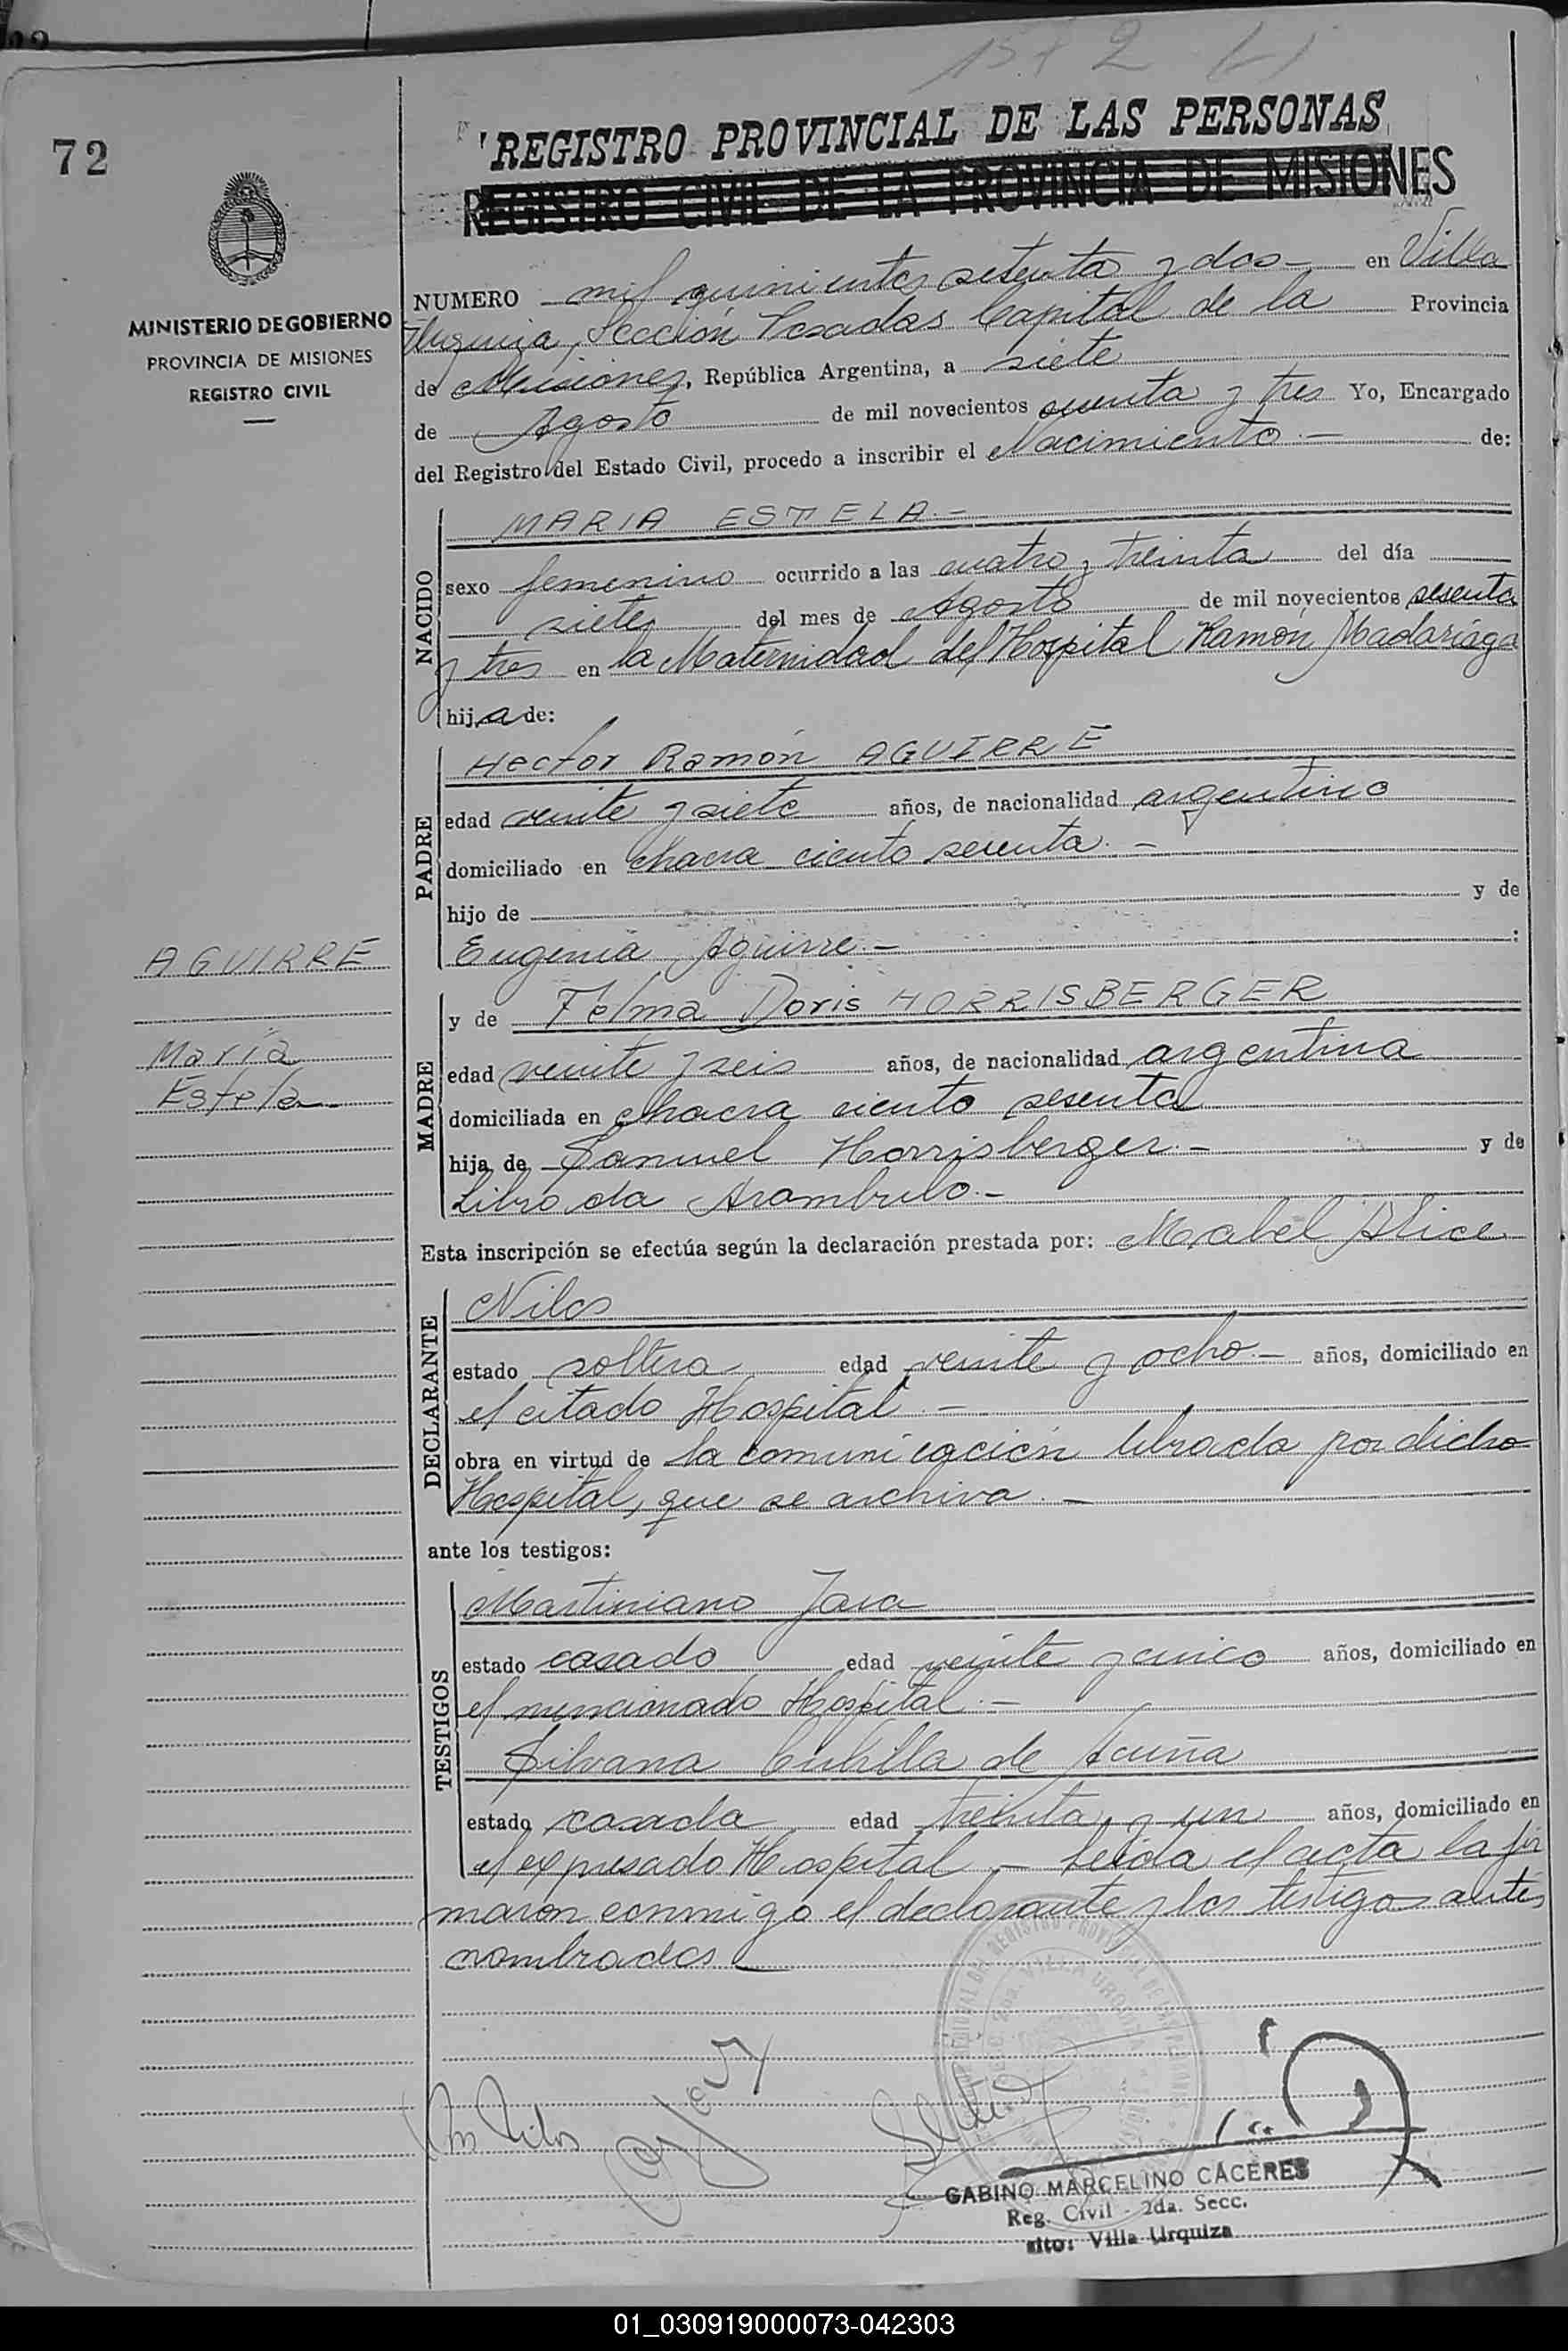 72
REGISTRO PROVINCIAL DE LAS PERSONAS
REGISTRO CIVIL DE LA PROVINCIA DE MISIONES
MINISTERIO DE GOBIERNO
PROVINCIA DE MISIONES
REGISTRO CIVIL
NUMERO mil quinientos setenta y dos - en Villa
Urquiza, Sección Posadas Capital de la Provincia
de Misiones, República Argentina, a siete
de Agosto de mil novecientos y tres Yo, Encargado
del Registro del Estado Civil, procedo a inscribir el Nacimiento. - de:
NACIDO
MARIA ESTELA. -
sexo femenino ocurrido a las cuatro y treinta del día
siete del mes de Agosto de mil novecientos sesenta
y tres en la Maternidad del Hospital Ramón Madariaga
hija de:
PADRE
Hector Ramón AGUIRRE
edad veinte y siete años, de nacionalidad argentino
domiciliado en chacra ciento sesenta. -
hijo de y de
Eugenia Aguirre. - :
AGUIRRE
María
Estela
MADRE
y de Telma Doris HORRISBERGER
edad veinte y seis años, de nacionalidad argentina
domiciliada en chacra ciento sesenta
hija de Samuel Horrisberger. - y de
Librada Arambulo. -
Esta inscripción se efectúa según la declaración prestada por: Mabel Alice
DECLARANTE
Nilos
estado soltera edad veinte y ocho. - años, domiciliado en
el citado Hospital. -
obra en virtud de la comunicación librada por dicho
Hospital, que se archiva. -
ante los testigos:
TESTIGOS
Martiniano Jara
estado casado edad veinte y cinco años, domiciliado en
el mencionado Hospital. -
Silvana Cubilla de Acuña
estado casada edad treinta y un años, domiciliado en
el expresado Hospital. - Leída el acta la fir
maron conmigo el declarante y los testigos antes
nombrados
GABINO MARCELINO CACERES
Reg. Civil - 2da. Secc.
sito: Villa Urquiza
01_030919000073-042303